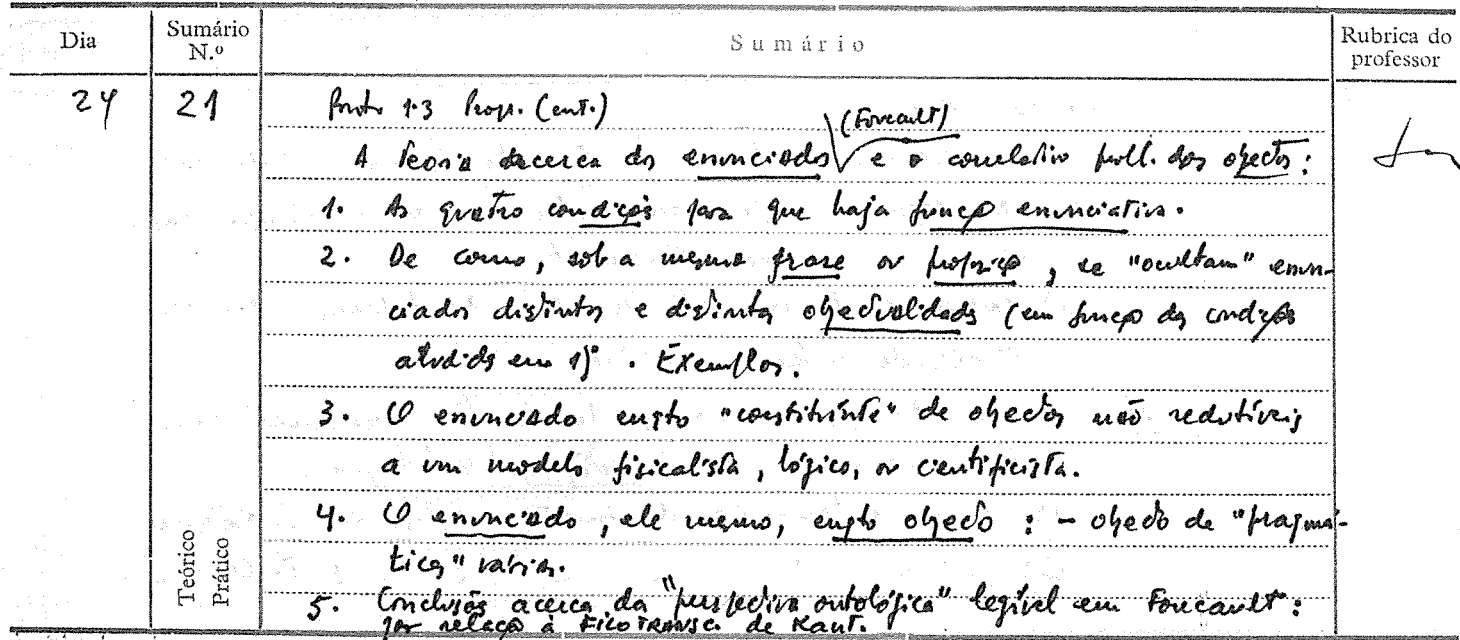 Dia
Sumário N.º
Sumário
Rubrica do professor
24 21
Ponto 1.3 Progr. (cont.)
A teoria acerca dos enunciados (Foucault) e o correlativo probl. dos objectos:
1. As quatro condições para que haja função enunciativa.
2. De como, sob a mesma frase ou proposição, se "ocultam" enun-
ciados distintos e distintas objectualidades (em função das condições
aludidas em 1)). Exemplos.
3. O enunciado enqto "constituinte" de objectos não redutíveis
a um modelo fisicalista, lógico, ou cientificista.
4. O enunciado, ele mesmo, enqto objecto: - objecto de "pragmá-
ticas" várias.
5. Conclusões acerca da "perspectiva ontológica" legível em Foucault:
por relação à Filo TRANSC. de Kant.
Teórico
Prático